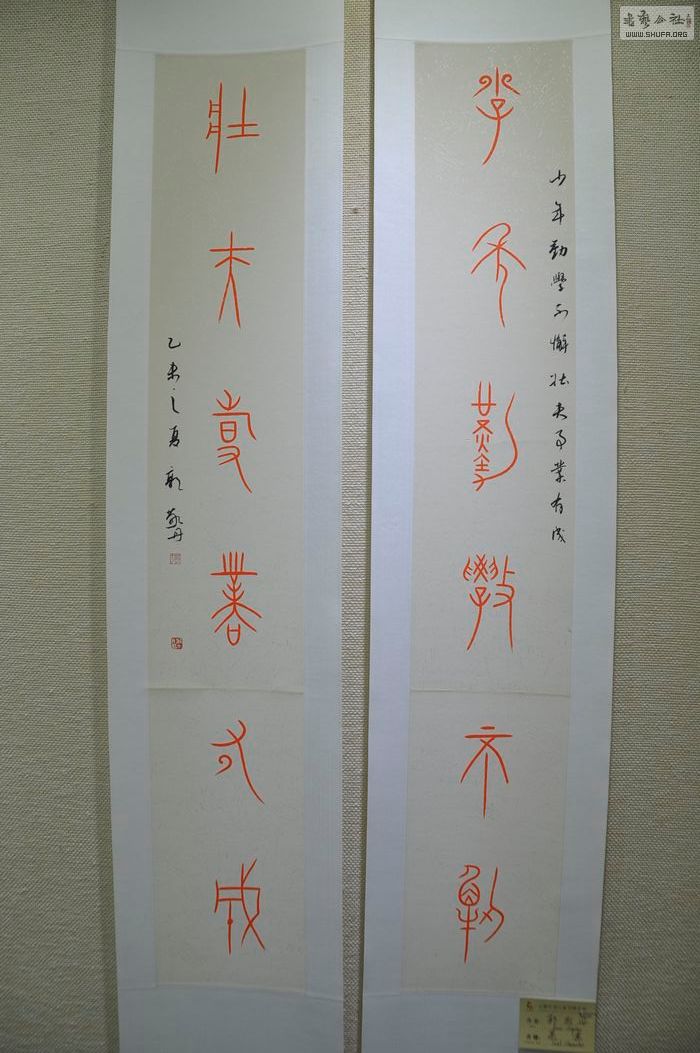 少年勤學不懈
少年勤學不懈壯夫事業有成
壯夫事業有成
乙未之夏
書藝公社
WWW.SHUFA.ORG